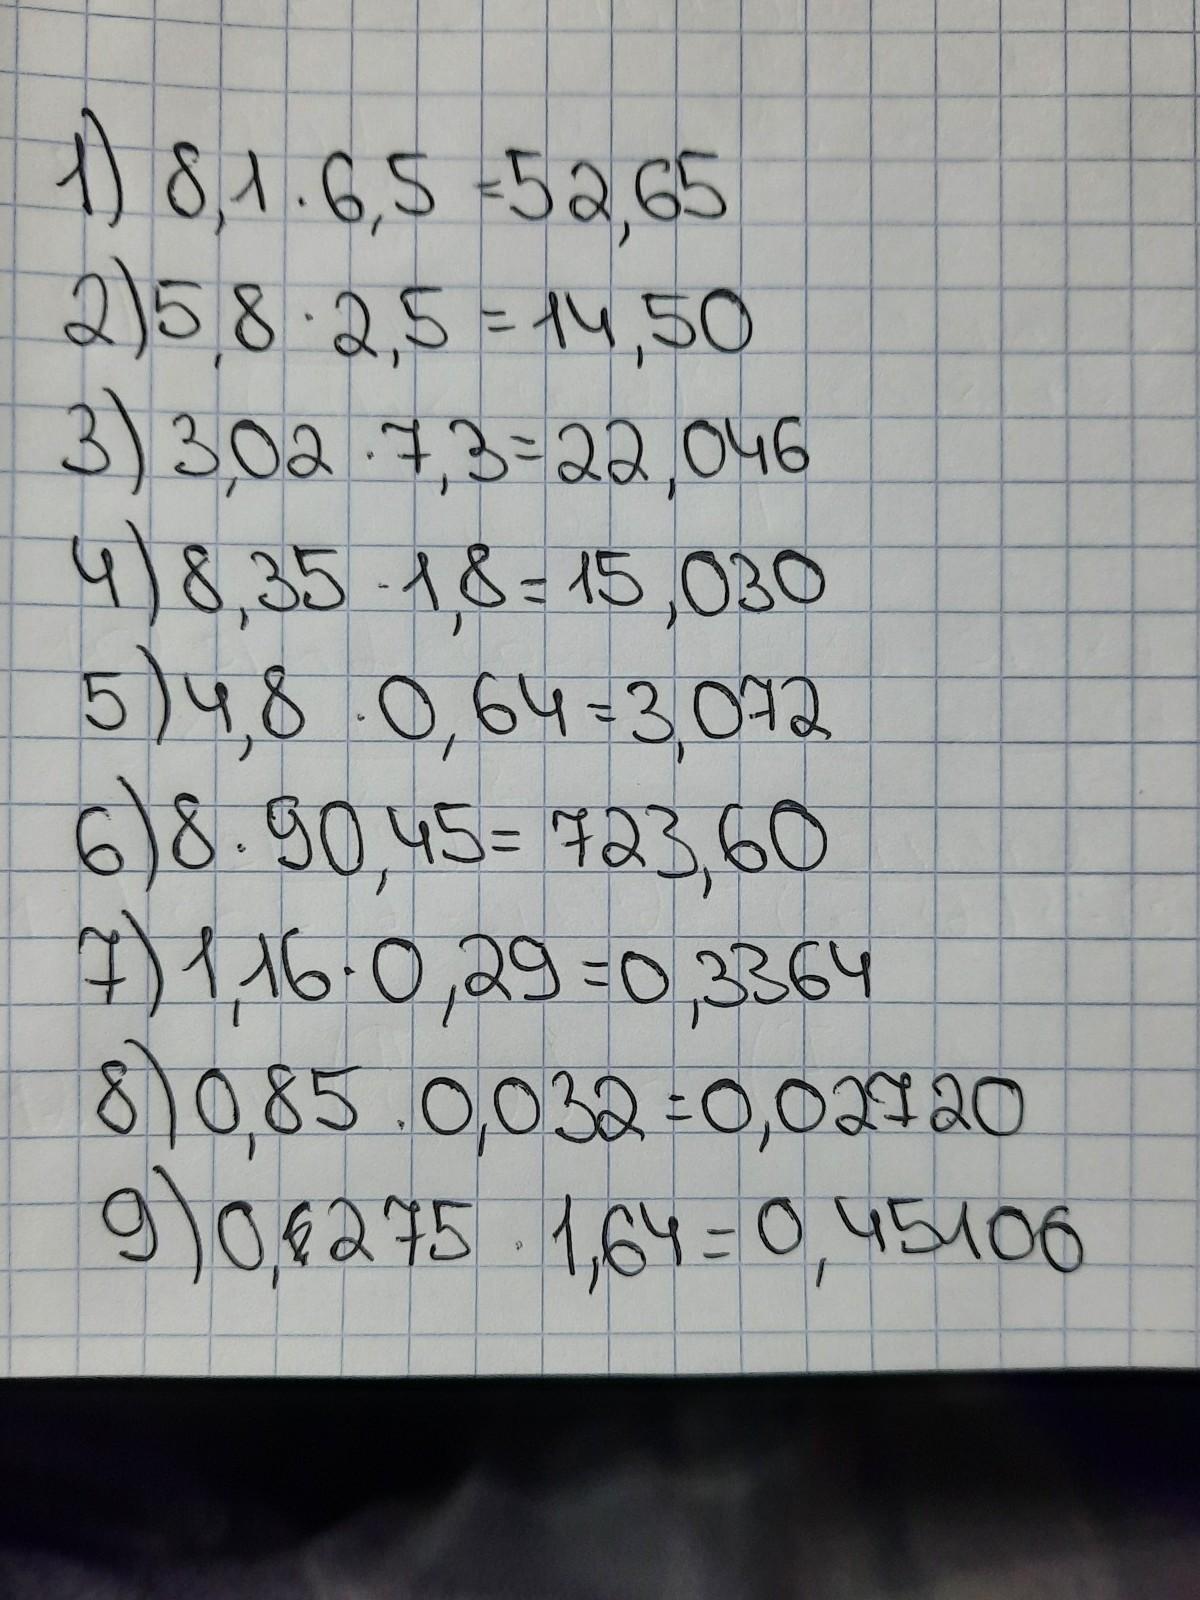 1) 8,1 · 6,5 = 52,65
2) 5,8 · 2,5 = 14,50
3) 3,02 · 7,3 = 22,046
4) 8,35 · 1,8 = 15,030
5) 4,8 · 0,64 = 3,072
6) 8 · 90,45 = 723,60
7) 1,16 · 0,29 = 0,3364
8) 0,85 · 0,032 = 0,02720
9) 0,275 · 1,64 = 0,45106